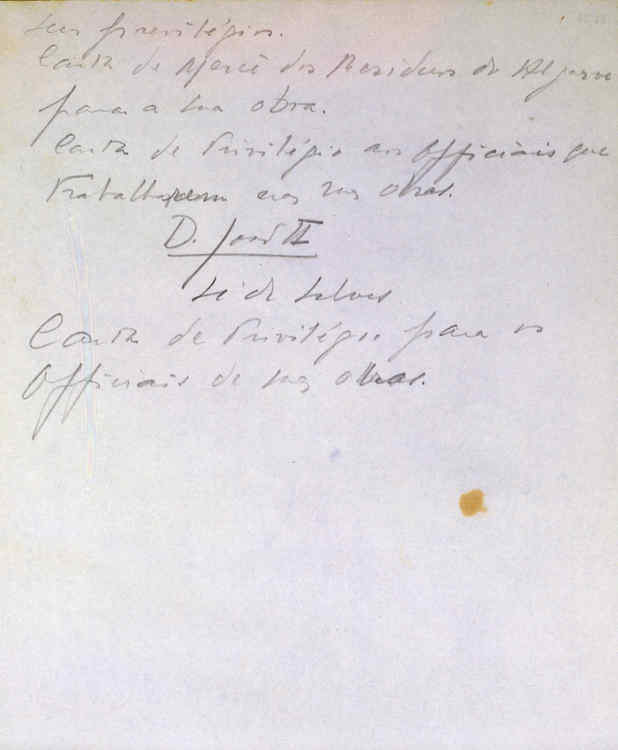 seus privilégios.
Carta de Mercê dos Residuos do Algarve
para a sua obra.
Carta de Privilégio aos Officiais que
trabalharem nas suas obras.
D. João II
Sé de Silves
Carta de Privilégio para os
Officiais de suas obras.